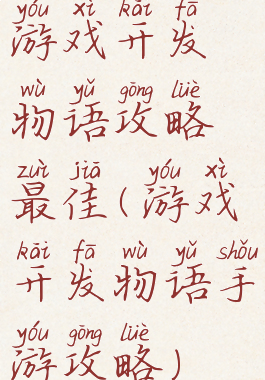 yóu xì kāi fā
游戏开发
wù yǔ gōng lüè
物语攻略
zuì jiā yóu xì
最佳(游戏
kāi fā wù yǔ shǒu
开发物语手
yóu gōng lüè
游攻略)